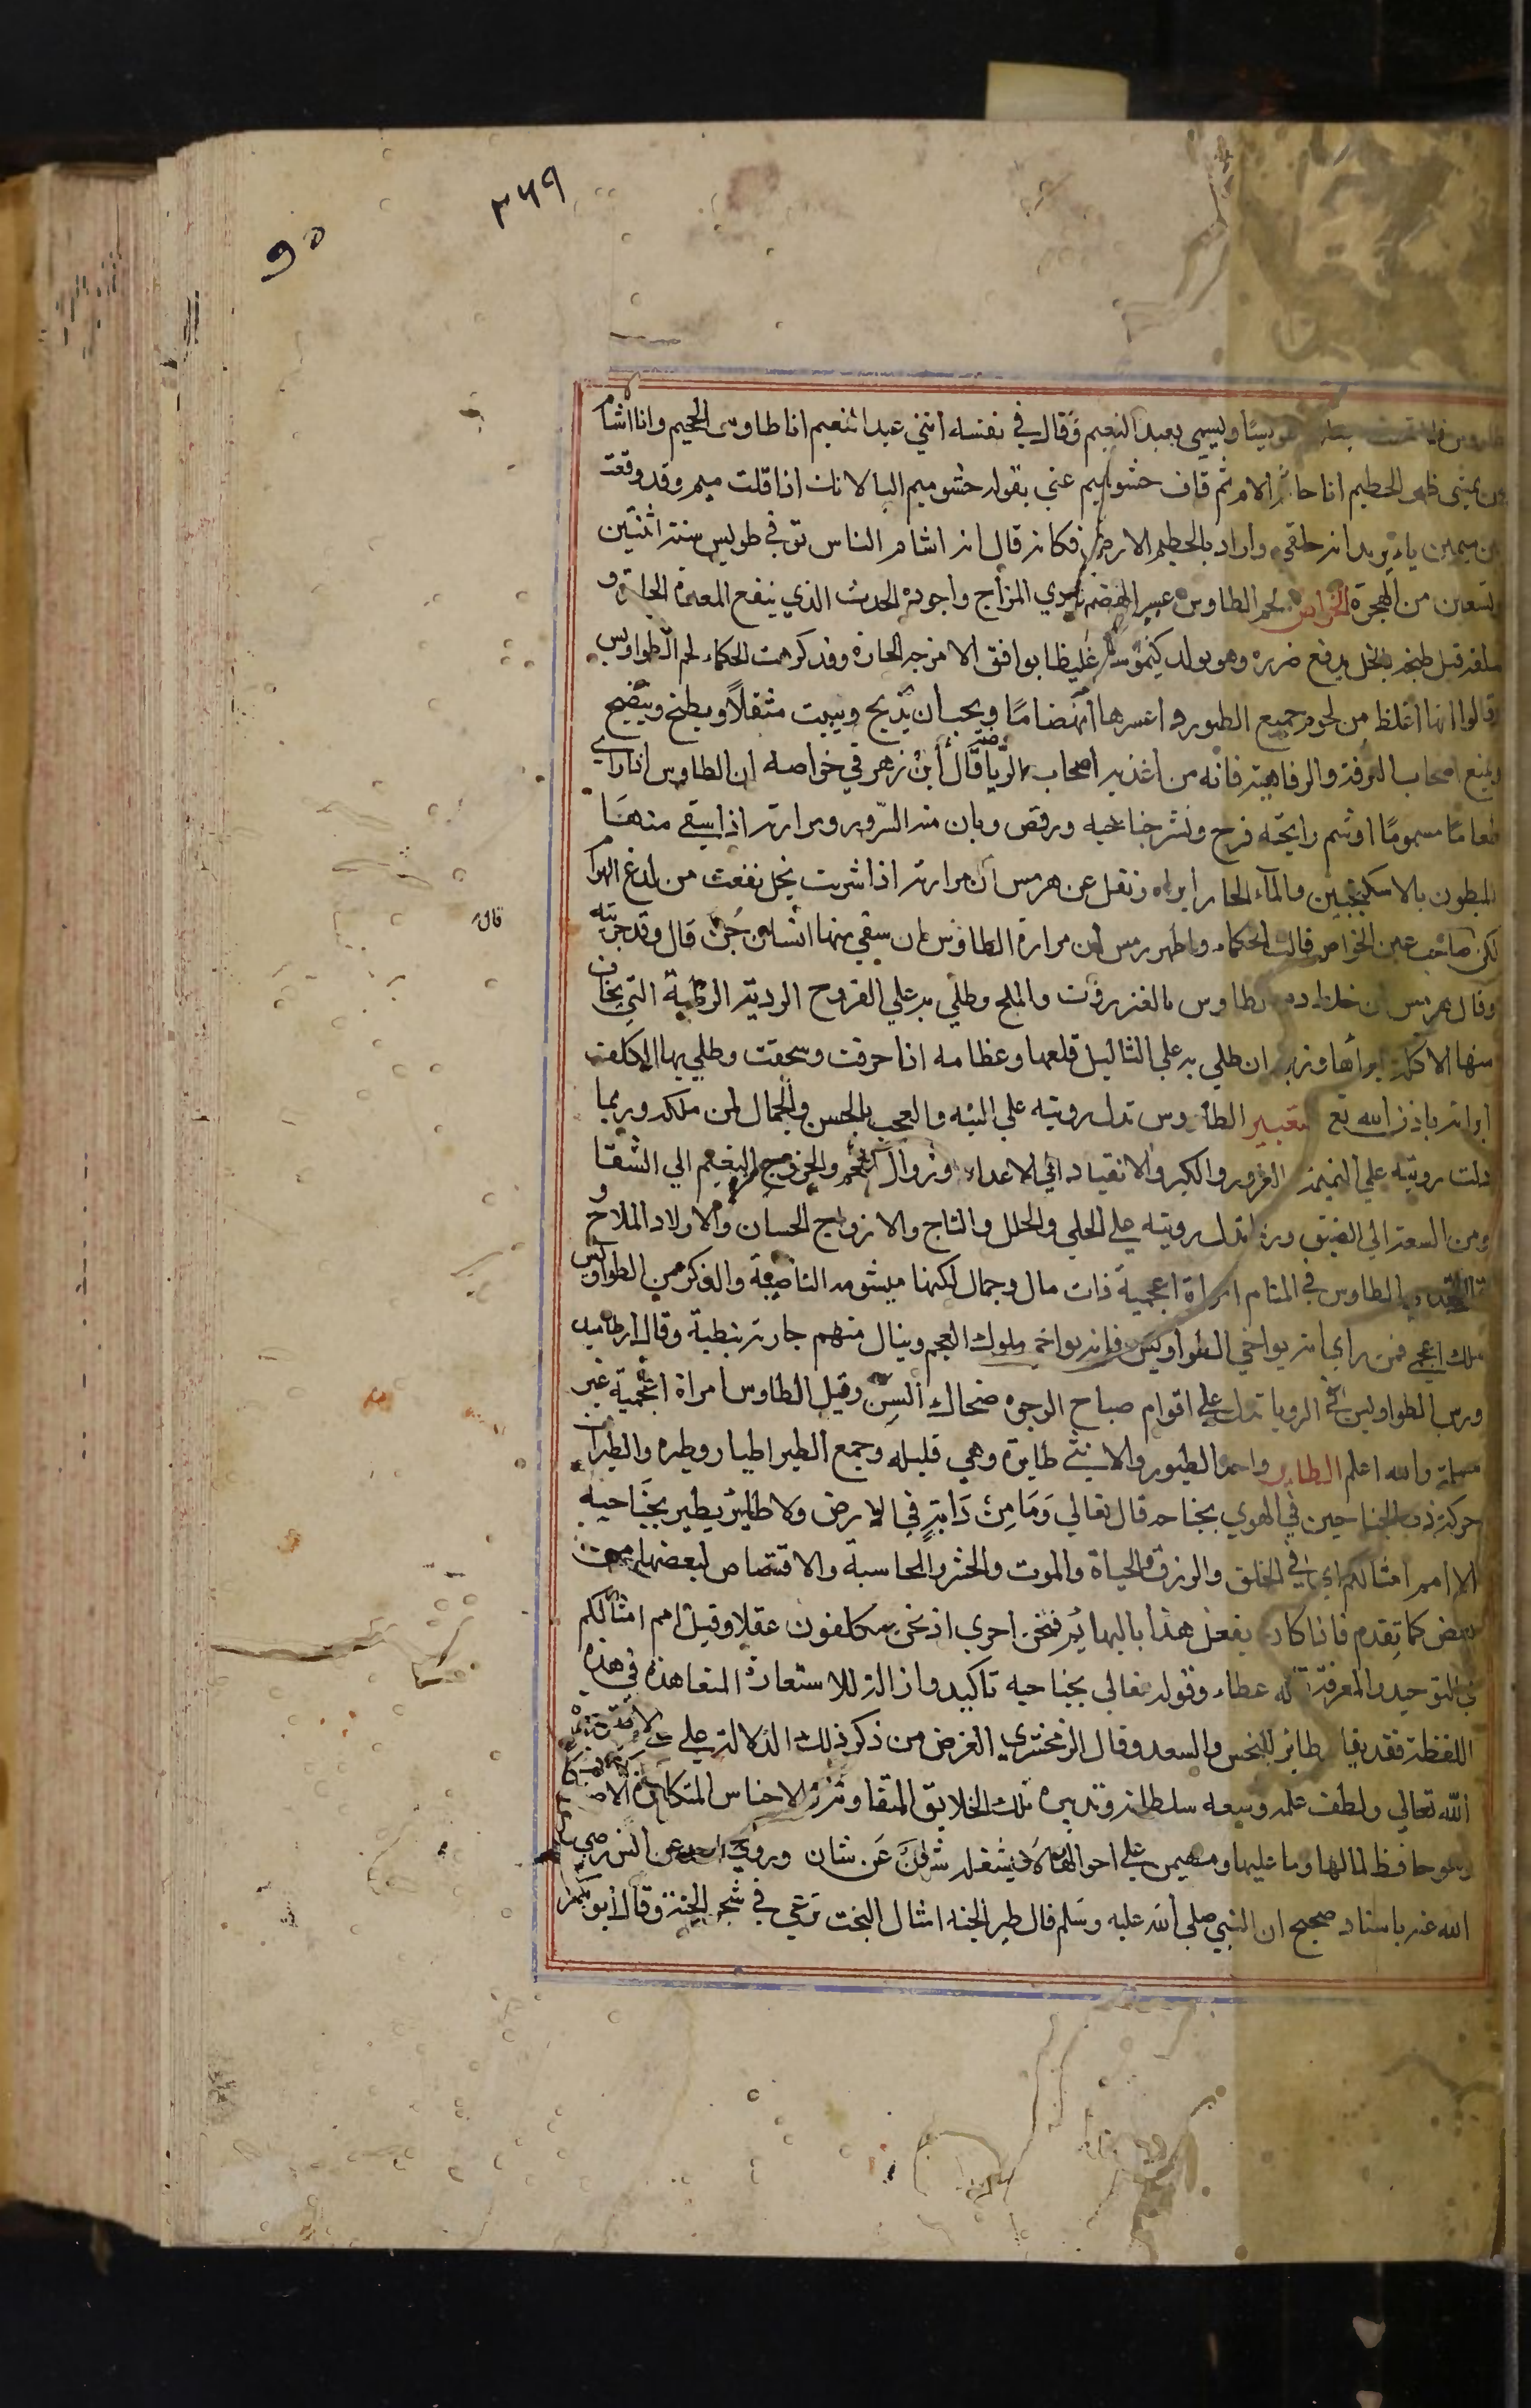 ٣٤٩
٩٥
ويسمى بعبد النعيم وقال في نفسه انني عبد النعيم انا طاوس الجحيم وانا اشام
من يمشي على ظهر الحطيم انا حا ثم لام ثم قاف حشو ميم عني بقوله حشو ميم اليا لانك اذا قلت ميم وقد وقعت
بين ميمين ياء يريد انه حلقي واراد بالحطيم الارض فكانه قال انه اشام الناس توفي طويس سنة اثنتين
وتسعين من الهجرة الخواص لحم الطاوس عسر الهضم ردي المزاج واجوده الحدث الذي ينفع المعدة الحارة و
سلقه قبل طبخه بالخل يدفع ضرره وهو يولد كيموسا غليظا يوافق الامزجه الحارة وقد كرهت الحكماء لحم الطواويس
وقالوا انها اغلظ من لحوم جميع الطيور واعسرها انهضاما ويجب ان يذبح ويبيت مثقلا ويطبخ وينضج
ويمنع اصحاب الترفة والرفاهية فانه من اغذية اصحاب الرياضة قال ابن زهر في خواصه ان الطاوس اذا راى
طعاما مسموما او شم رايحته فرح ونشر جناحيه ورقص وبان منه السرور ومرارته اذا سقي منها
المبطون بالاسكنجبين والماء الحار ابراه ونقل عن هرمس ان مرارته اذا شربت بخل نفعت من لدغ الهوام
لكن صاحب عين الخواص قال قالت الحكماء واطهورمس ان مرارة الطاوس ان سقي منها انسان جن قال وقد جربته
قال
وقال هرمس ان خلط دم الطاوس بالعنزروت والملح وطلي به على القروح الردية الرطبة التي يخاف
منها الاكلة ابراها وزبله ان طلي به على الثاليل قلعها وعظامه اذا حرقت وسحقت وطلي بها الكلف
ابراته باذن الله تع التعبير الطاوس تدل رويته على التيه والعجب بالحسن والجمال لمن ملكه وربما
دلت رويته على النميمة والغرور والكبر والانقياد الي الاعداء وزوال النعم والخروج من النعيم الي الشقا
ومن السعة الي الضيق وربما تدل رويته على الحلي والحلل والتاج والازواج الحسان والاولاد الملاح و
قال المقدسي الطاوس في المنام امراة اعجمية ذات مال وجمال لكنها ميشومة الناصية والذكر من الطواويس
ملك اعجمي فمن راى انه يواخي الطواويس فانه يواخي ملوك العجم وينال منهم جارية نبطية وقال ارطاميدورس
الطواويس في الرويا تدل على اقوام صباح الوجوه ضحاك السن وقيل الطاوس امراة اعجمية غير
مسلمة والله اعلم الطاير واحد الطيور والانثى طايرة وهي قليله وجمع الطير اطيار وطيور والطيران
حركة ذي الجناحين في الهوي بجناحه قال تعالي وَمَا مِنْ دَابَّةٍ في الارض ولا طائر يطير بجناحيه
الا امم امثالكم اي في الخلق والرزق والحياة والموت والحشر والمحاسبة والاقتصاص لبعضها من
بعض كما تقدم فاذا كان يفعل هذا بالبهائم فنحن احرى اذ نحن مكلفون عقلا وقيل امم امثالكم
في التوحيد والمعرفة قاله عطاء وقوله تعالى بجناحيه تاكيد وازالة للاستعارة المتعاهدة في هذه
اللفظة فقد يقال طائر للنحس والسعد وقال الزمخشري الغرض من ذكر ذلك الدلالة على
الله تعالي ولطف علمه وسعه سلطانه وتدبيره تلك الخلايق المتفاوتة الاجناس المتكاثرة الاصناف
وهو حافظ لما لها وما عليها ومهيمن على احوالها لا يشغله شان عن شان وروى احمد عن انس رضي
الله عنه باسناد صحيح ان النبي صلى الله عليه وسلم قال طير الجنة امثال البخت ترعى في شجر الجنة وقال ابو بكر